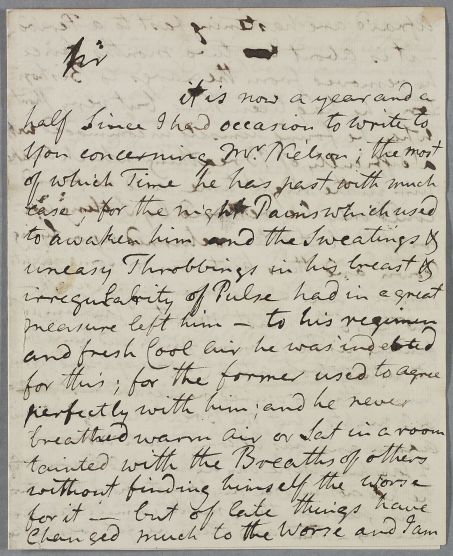 Sir
it is now a year and a
half Since I had occasion to write to
you concerning Mr. Nielson; the most
of which Time he has past with much
ease, for the night Pains which used
to awaken him and the Sweatings &
uneasy Throbbings in his breast &
irregularity of Pulse had in a great
measure left him — to his regimen
and fresh Cool air he was indebted
for this; for the former used to agree
perfectly with him; and he never
breathed warm air or Sat in a room
tainted with the Breaths of others
without finding himself the worse
for it — but of late things have
Changed much to the Worse and I am